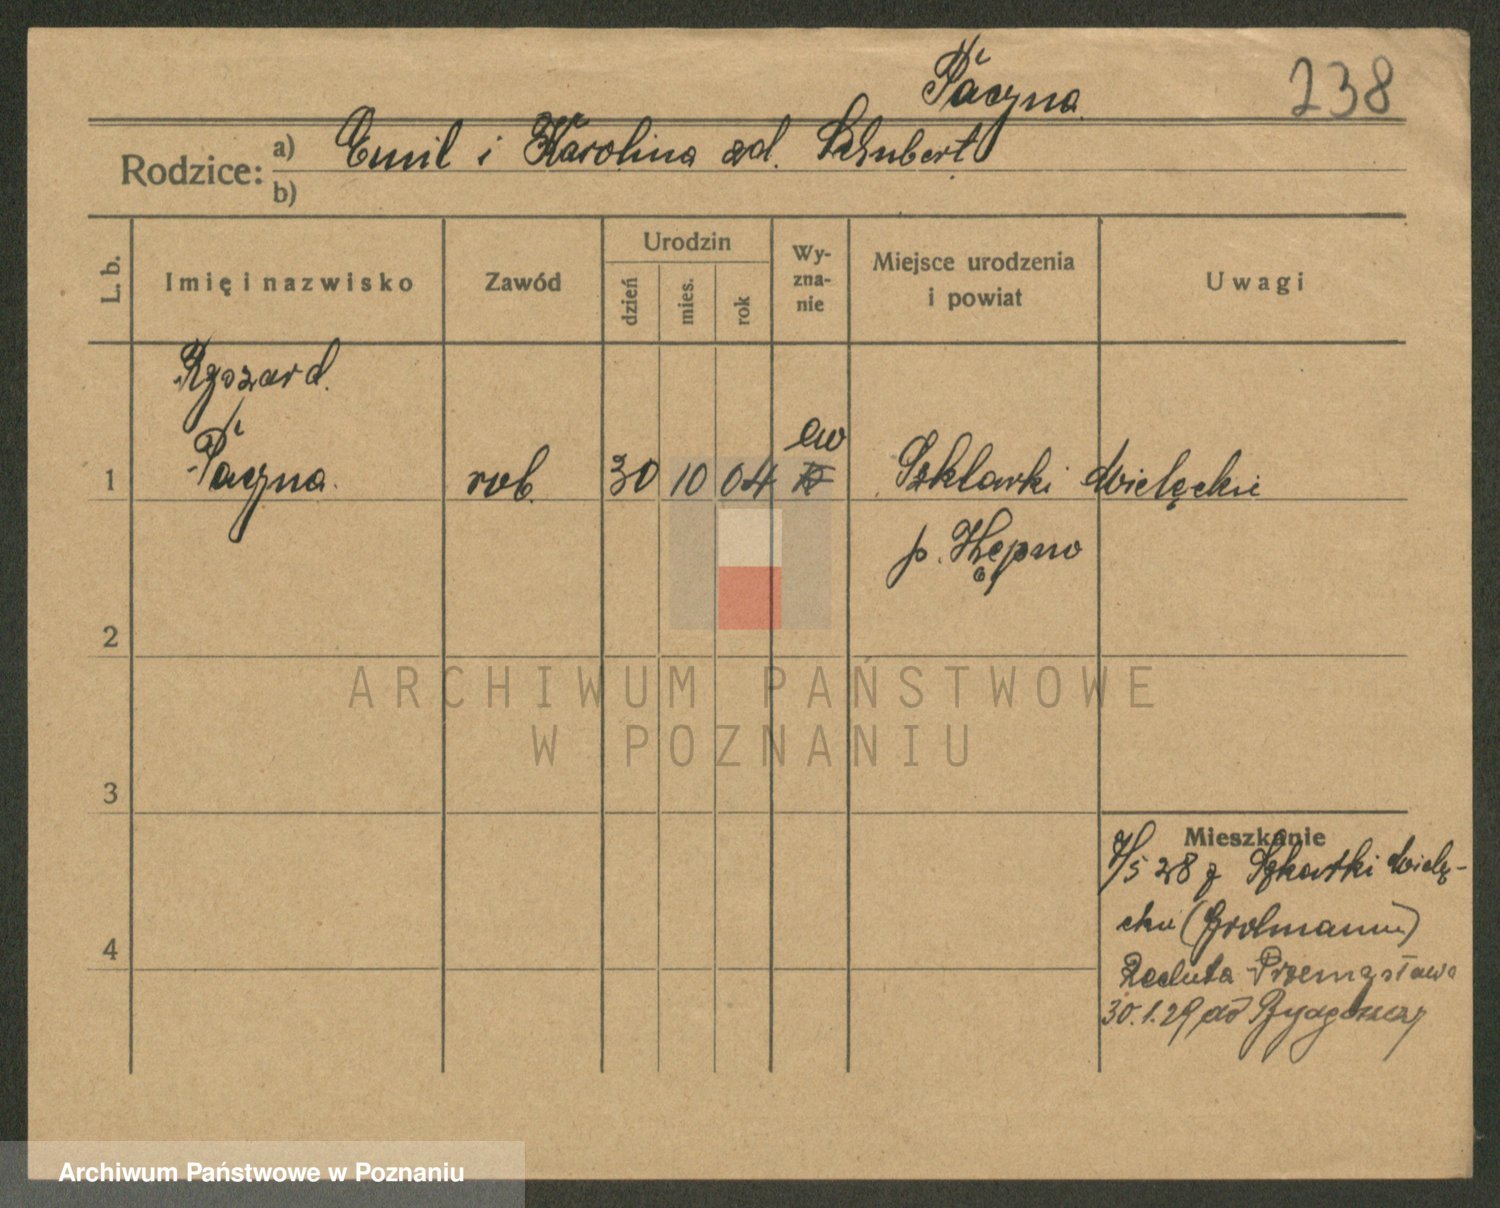 Páczna
238
Rodzice: a) Emil i Karolina zd. Schubert
b)
L. b. Imię i nazwisko Zawód Urodzin dzień mies. rok Wy-zna-nie Miejsce urodzenia i powiat Uwagi
Ryszard
ew
1 Páczna rob. 30 10 04 Szklarki Mielęckie
p. Kępno
2
ARCHIWUM PAŃSTWOWE
W POZNANIU
3
Mieszkanie
7/5 28 z Mielę-
ckie (Grolmann)
4
Reduta Przemysława
30.1.29 do Bydgoszczy
Archiwum Państwowe w Poznaniu